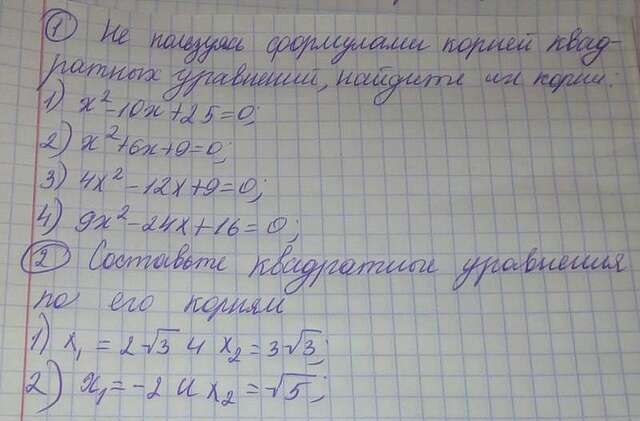 ① Не пользуясь формулами корней квад-
ратных уравнений, найдите их корни:
1) x²-10x+25=0;
2) x²+6x+9=0;
3) 4x²-12x+9=0;
4) 9x²-24x+16=0;
② Составьте квадратные уравнения
по его корням
1) x₁ = 2√3 и x₂ = 3√3;
2) x₁ = -2 и x₂ = √5;